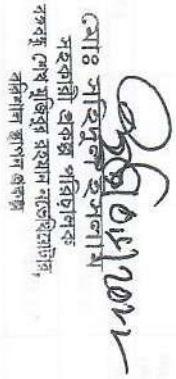 মোঃ ইসলাম
সহকারী প্রকল্প পরিচালক
বঙ্গবন্ধু শেখ মুজিবুর রহমান নভোথিয়েটার,
বরিশাল স্থাপন প্রকল্প